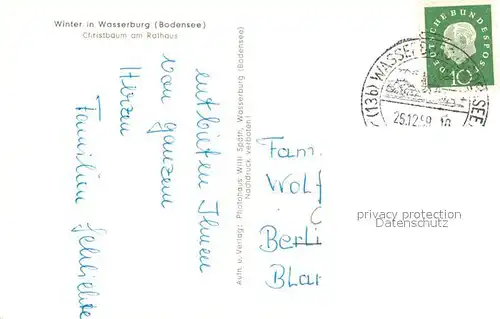 Winter in Wasserburg (Bodensee)
Christbaum am Rathaus
entbieten Ihnen
von ganzem
Herzen
Familien Schlichte
Aufn. u. Verlag: Photohaus Willi Späth, Wasserburg (Bodensee)
Nachdruck verboten!
DEUTSCHE BUNDESPOST
10
(13b) WASSERBURG
25.12.59
Fam.
Wolf
Berli
Blar
privacy protection
Datenschutz